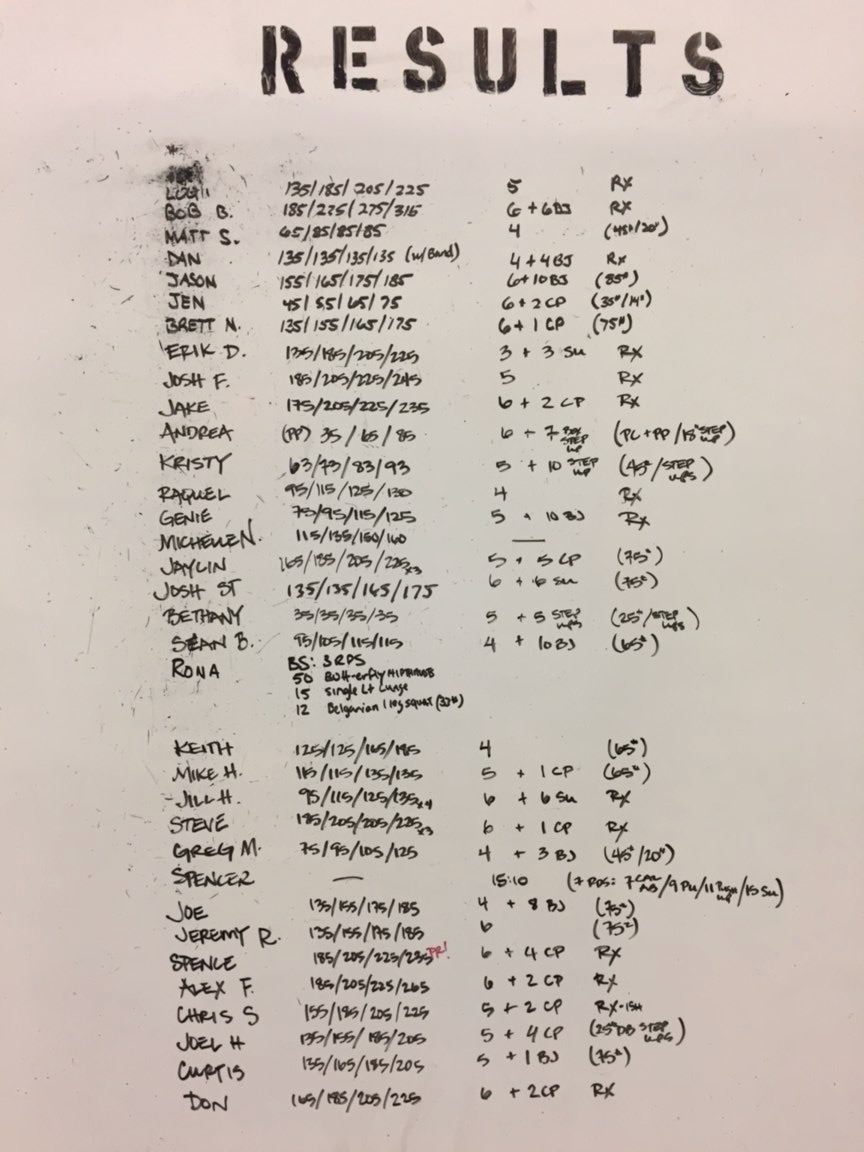 RESULTS
LOUI 135/185/205/225 5 RX
BOB B. 185/225/275/315 6 + 6BJ RX
MATT S. 65/85/85/85 4 (45#/20")
DAN 135/135/135/135 (w/Band) 4 + 4BJ Rx
JASON 155/165/175/185 6+10BJ (85#)
JEN 45/55/65/75 6+2 CP (35#/14")
BRETT N. 135/155/165/175 6+1 CP (75#)
ERIK D. 135/185/205/225 3 + 3 SU RX
JOSH F. 185/205/225/245 5 RX
JAKE 175/205/225/235 6 + 2 CP RX
ANDREA (PP) 35/65/85 6 + 7 BOX STEP UP (PC+PP/18" STEP UP)
KRISTY 63/73/83/93 5 + 10 STEP UP (45#/STEP UPS)
RAQUEL 95/115/125/130 4 RX
GENIE 75/95/115/125 5 + 10 BJ RX
MICHELLE N. 115/135/150/160 —
JAYLIN 165/185/205/225x3 5 + 5 CP (75#)
JOSH ST 135/135/165/175 6 + 6 SU (75#)
BETHANY 35/35/35/35 5 + 5 STEP UPS (25#/STEP UPS)
SEAN B. 95/105/115/115 4 + 10BJ (65#)
RONA BS: 3 RDS
50 Butterfly HIPTHRUSTS
15 Single Lt Lunge
12 Belgarian 1 leg squat (30#)
KEITH 125/125/165/185 4 (65#)
MIKE H. 115/115/135/135 5 + 1 CP (65#)
-JILL H. 95/115/125/135x4 6 + 6 SU RX
STEVE 185/205/205/225x3 6 + 1 CP RX
GREG M. 75/95/105/125 4 + 3 BJ (45#/20")
SPENCER — 15:10 (7 RDS: 7 /9 PU/11 PUSH UP/15 SU)
JOE 135/155/175/185 4 + 8 BJ (75#)
JEREMY R. 135/155/175/185 6 (75#)
SPENCE 185/205/225/235 PR! 6 + 4 CP RX
ALEX F. 185/205/225/265 6 + 2 CP RX
CHRIS S 155/185/205/225 5 + 2 CP RX-ISH
JOEL H 135/155/185/205 5 + 4 CP (25# DB STEP UPS)
CURTIS 135/165/185/205 5 + 1 BJ (75#)
DON 165/185/205/225 6 + 2CP RX